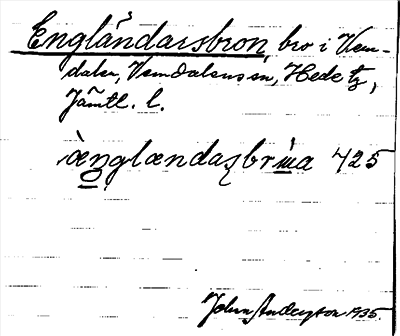 Engländarsbron, bro i Vem-
dalen, Vemdalens sn, Hede tg,
Jämtl. l.
ænglændaʂbrɯa 425
John Anderzon 1935.